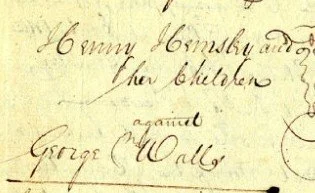 Henny Hemsley and
her Children
against
George Walls